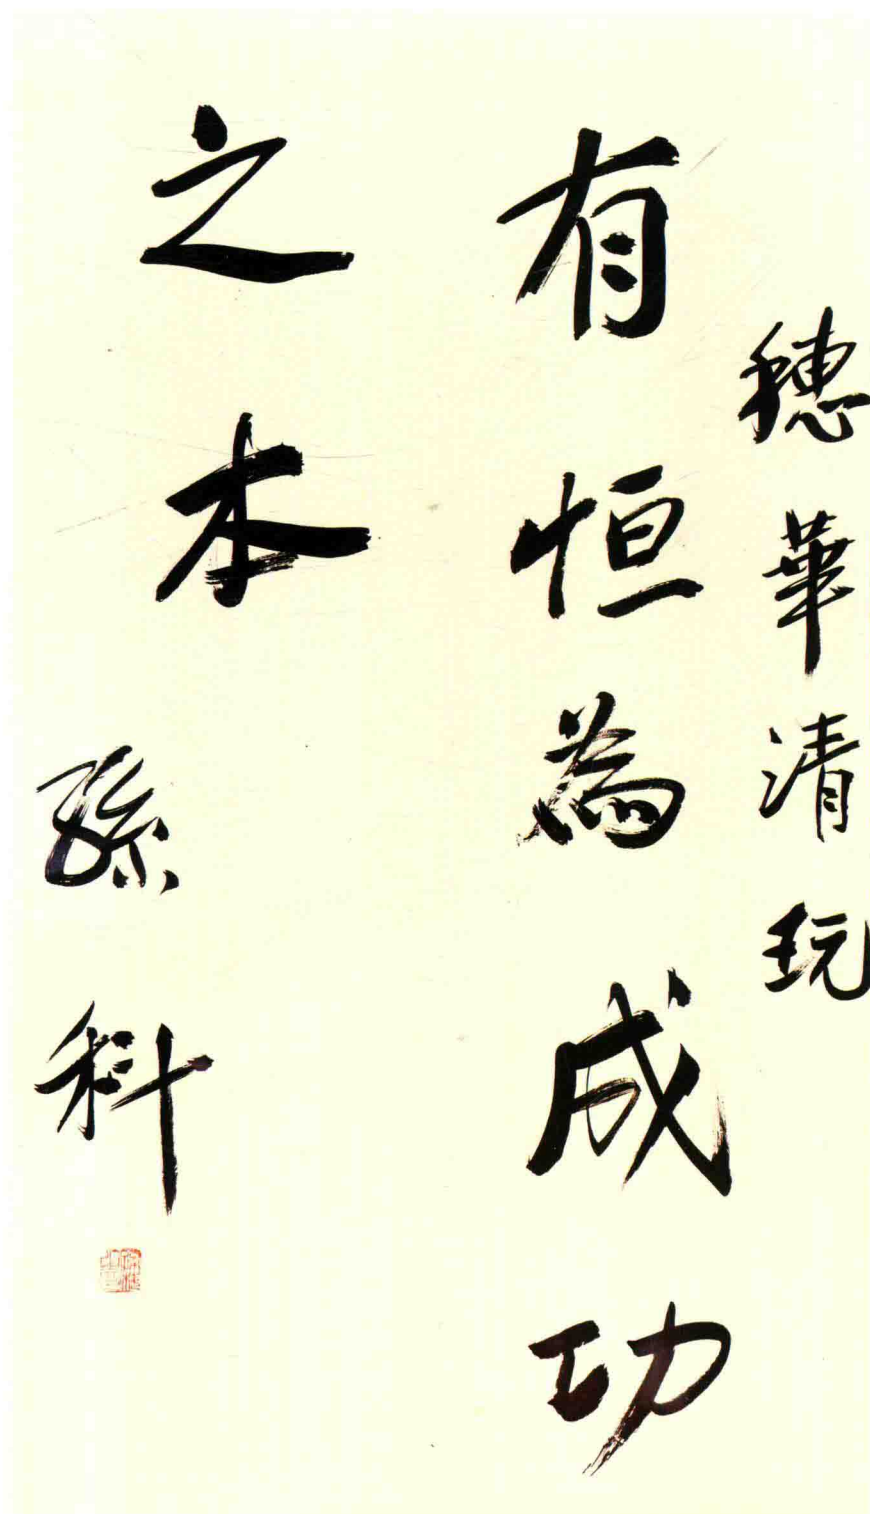 穗華清玩
有恒為成功
之本
孫科